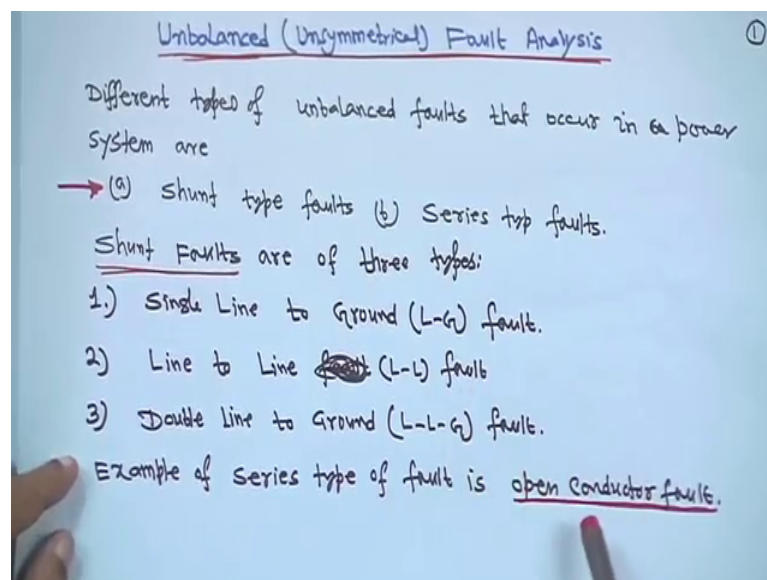 Unbalanced (Unsymmetrical) Fault Analysis
1
Different types of unbalanced faults that occur in a power
System are
(a) Shunt type faults (b) Series typ faults.
Shunt Faults are of three types:
1.) Single Line to Ground (L-G) fault.
2) Line to Line (L-L) fault
3) Double Line to Ground (L-L-G) fault.
Example of series type of fault is open conductor fault.